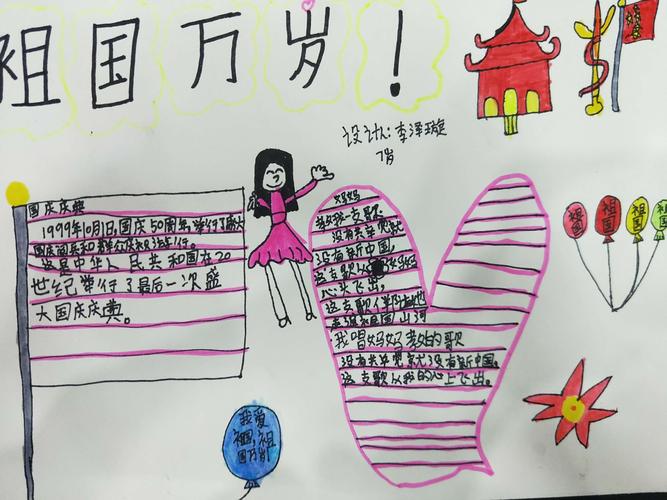 祖国万岁！
设计人：李泽璇
7岁
国庆庆典
1999年10月1日,国庆50周年,举行了盛大
国庆阅兵和群众庆祝游行。
这是中华人民共和国在20
世纪举行了最后一次盛
大国庆庆典。
妈妈
教我一支歌
没有共产党就
没有新中国,
这支歌从妈妈
心头飞出,
这支歌伴随着她
祖国山河
我唱妈妈教的歌
没有共产党就没有新中国。
这支歌从我的心上飞出。
祖国
祖国
祖国
祖国
我爱
祖国,祖
国万岁